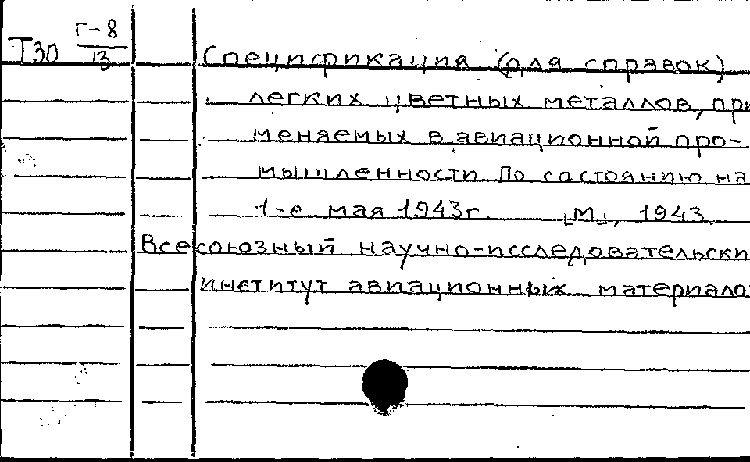 Г-8
Т30 13
Спецификация (для справок)
легких цветных металлов, при
меняемых в авиационной про-
мышленности По состоянию на
1-е мая 1943г. [М], 1943.
Всесоюзный научно-исследовательски
институт авиационных материало